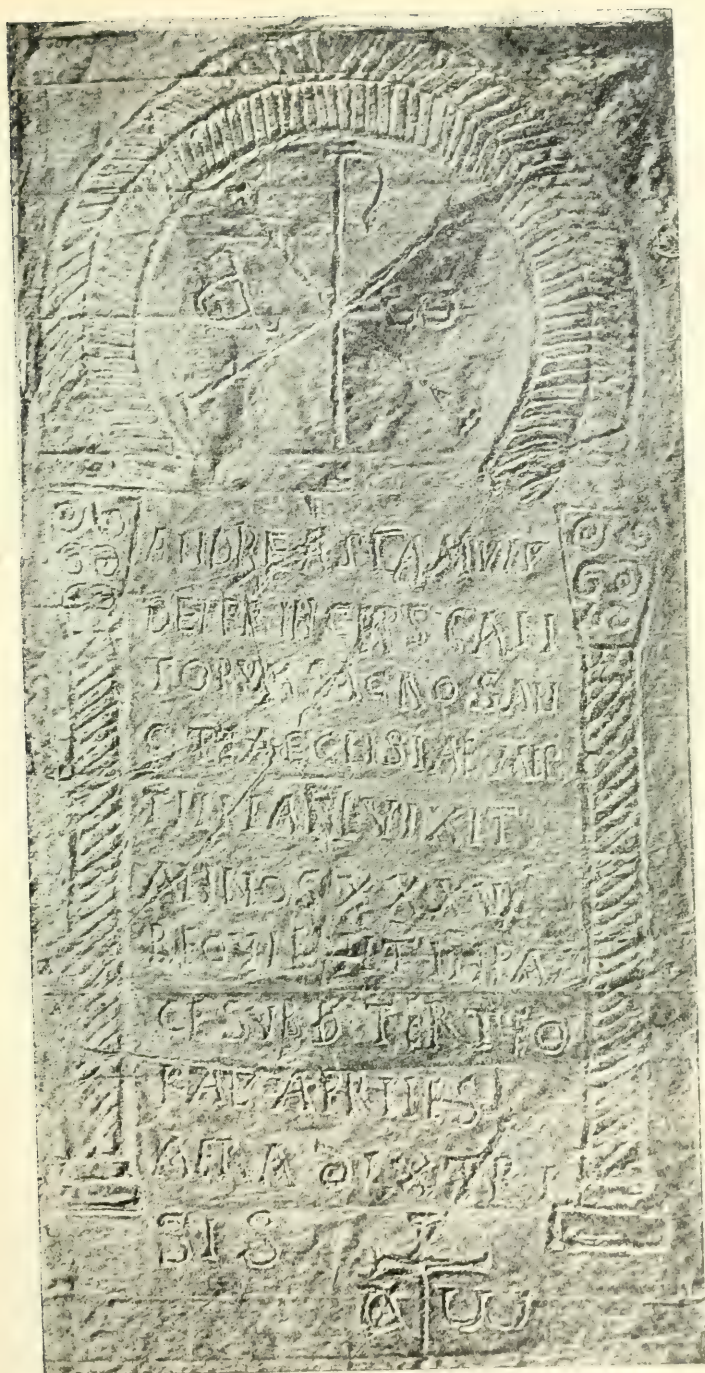 Α ω
ANDREAS FAMVLVS
DEI PRINCEPS CAN
TORVM SACROSAN
CTE AECLISIAE MER
TILLIANE VIXIT
ANNOS XXXVI
REQVIEVIT IN PA
CE SVB D TERTIO
KAL APRILES
AERA DLX TRI
SIS
Α ω